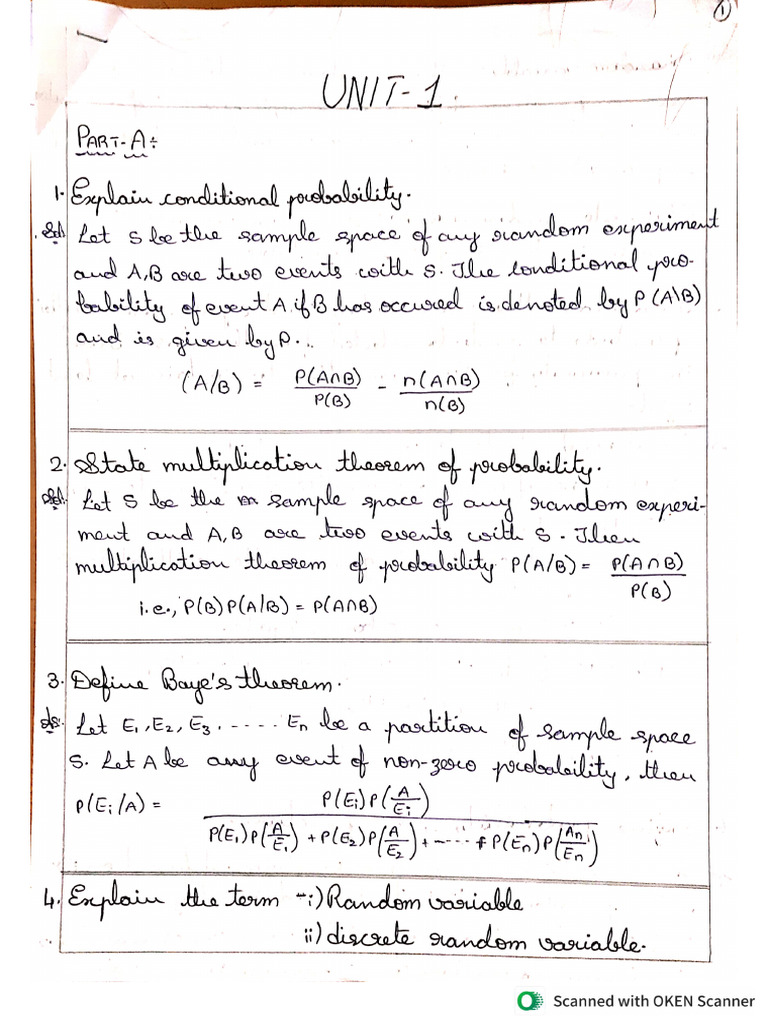 ①
UNIT-1.
PART-A:
1. Explain conditional probability.
Sol: Let S be the sample space of any random experiment
and A,B are two events with S. The conditional pro-
bability of event A if B has occured is denoted by P(A\B)
and is given by P...
(A/B) = P(A∩B)/P(B) - n(A∩B)/n(B)
2. State multiplication theorem of probability.
Sol: Let S be the sample space of any random experi-
ment and A,B are two events with S. Then
multiplication theorem of probability P(A/B) = P(A∩B)/P(B)
i.e., P(B)P(A/B) = P(A∩B)
3. Define Baye's theorem.
Let E₁, E₂, E₃, ..... En be a partition of sample space
S. Let A be any event of non-zero probability, then
P(Ei/A) = P(Ei)P(A/Ei) / P(E₁)P(A/E₁) + P(E₂)P(A/E₂) + ----- + P(En)P(An/En)
4. Explain the term - i) Random variable
ii) discrete random variable.
Scanned with OKEN Scanner